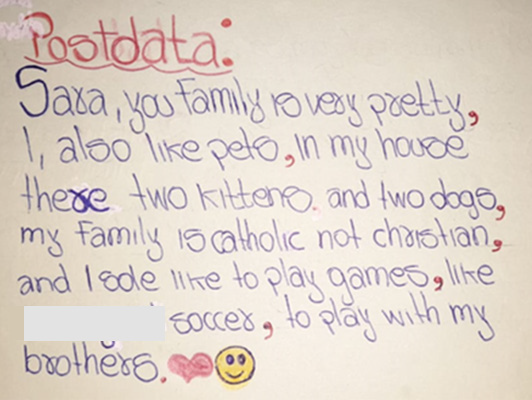 Postdata:
Sara, you family is very pretty,
I, also like pets, in my house
there two kittens. and two dogs,
my family is catholic not christian,
and I sole like to play games, like
soccer, to play with my
brothers.